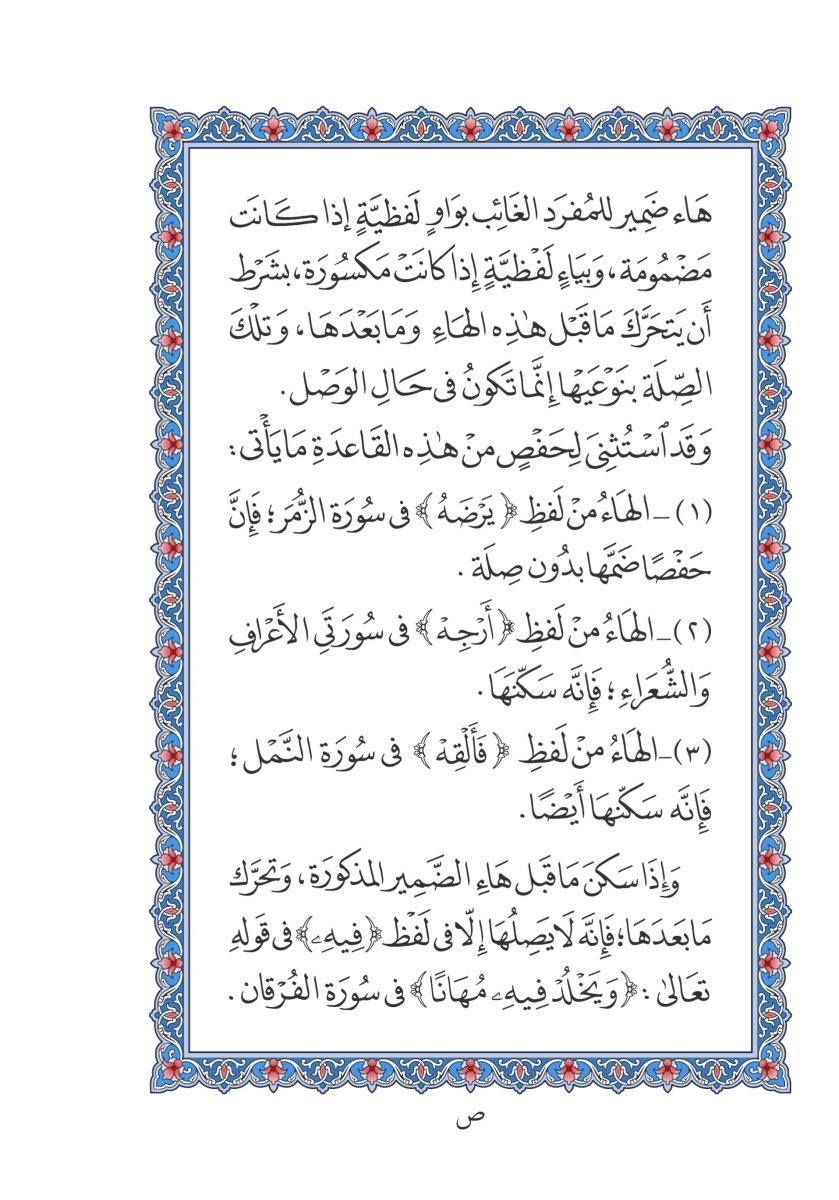 هَاء ضَمِير للمُفرَد الغَائِب بوَاوٍ لَفظِيَّةٍ إذا كَانَت
مَضْمُومَة، وَبيَاءٍ لَفْظِيَّةٍ إِذا كانَتْ مَكسُورَة، بشَرْط
أَن يَتحَرَّكَ مَا قَبْل هـٰذِه الهَاءِ وَمَا بَعْدَهَا، وَتلْكَ
الصِّلَة بنَوْعَيْهَا إِنَّما تَكونُ فى حَالِ الوَصْل.
وَقَد ٱسْتُثِنىَ لِحَفْصٍ منْ هـٰذِه القَاعدَةِ مَا يَأْتى:
(١) ـ الهَاءُ منْ لَفظِ ﴿يَرْضَهُ﴾ فى سُورَة الزُّمَر؛ فَإِنَّ
حَفْصًا ضَمَّها بدُون صِلَة.
(٢) ـ الهَاءُ منْ لَفظِ ﴿أَرْجِهْ﴾ فى سُورَتَيِ الأَعْرَافِ
وَالشُّعَرَاءِ؛ فَإِنَّه سَكّنَهَا.
(٣) ـ الهَاءُ منْ لَفظِ ﴿فَأَلْقِهْ﴾ فى سُورَة النَّمْل؛
فَإِنَّه سَكّنهَا أَيْضًا.
وَإِذَا سَكنَ مَا قَبل هَاءِ الضَّمِير المذكورَة، وَتحرَّك
مَا بَعدَهَا؛ فَإِنَّه لَا يَصِلُهَا إلّا فى لَفْظ ﴿فِيهِۦ﴾ فى قَولهِ
تعَالىٰ: ﴿وَيَخْلُدْ فِيهِۦ مُهَانًا﴾ فى سُورَة الفُرْقان.
ص